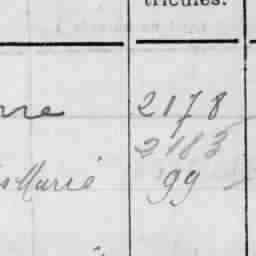 tricules.
rre 2178
2183
s Marie 99